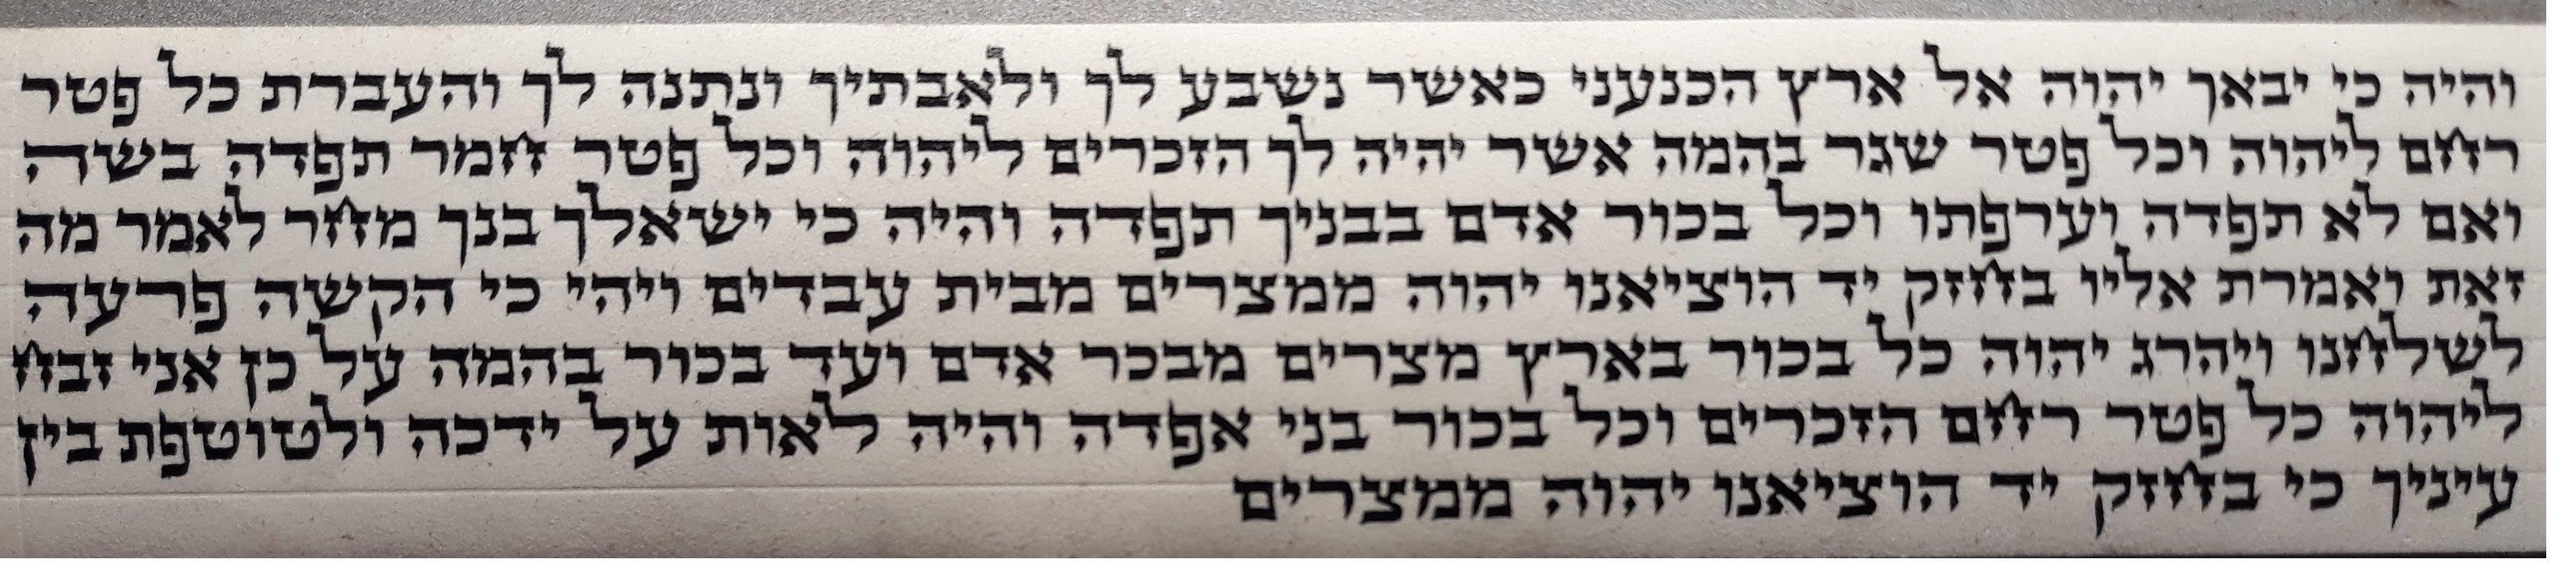 והיה כי יבאך יהוה אל ארץ הכנעני כאשר נשבע לך ולאבתיך ונתנה לך והעברת כל פטר
רחם ליהוה וכל פטר שגר בהמה אשר יהיה לך הזכרים ליהוה וכל פטר חמר תפדה בשה
ואם לא תפדה וערפתו וכל בכור אדם בבניך תפדה והיה כי ישאלך בנך מחר לאמר מה
זאת ואמרת אליו בחזק יד הוציאנו יהוה ממצרים מבית עבדים ויהי כי הקשה פרעה
לשלחנו ויהרג יהוה כל בכור בארץ מצרים מבכר אדם ועד בכור בהמה על כן אני זבח
ליהוה כל פטר רחם הזכרים וכל בכור בני אפדה והיה לאות על ידכה ולטוטפת בין
עיניך כי בחזק יד הוציאנו יהוה ממצרים